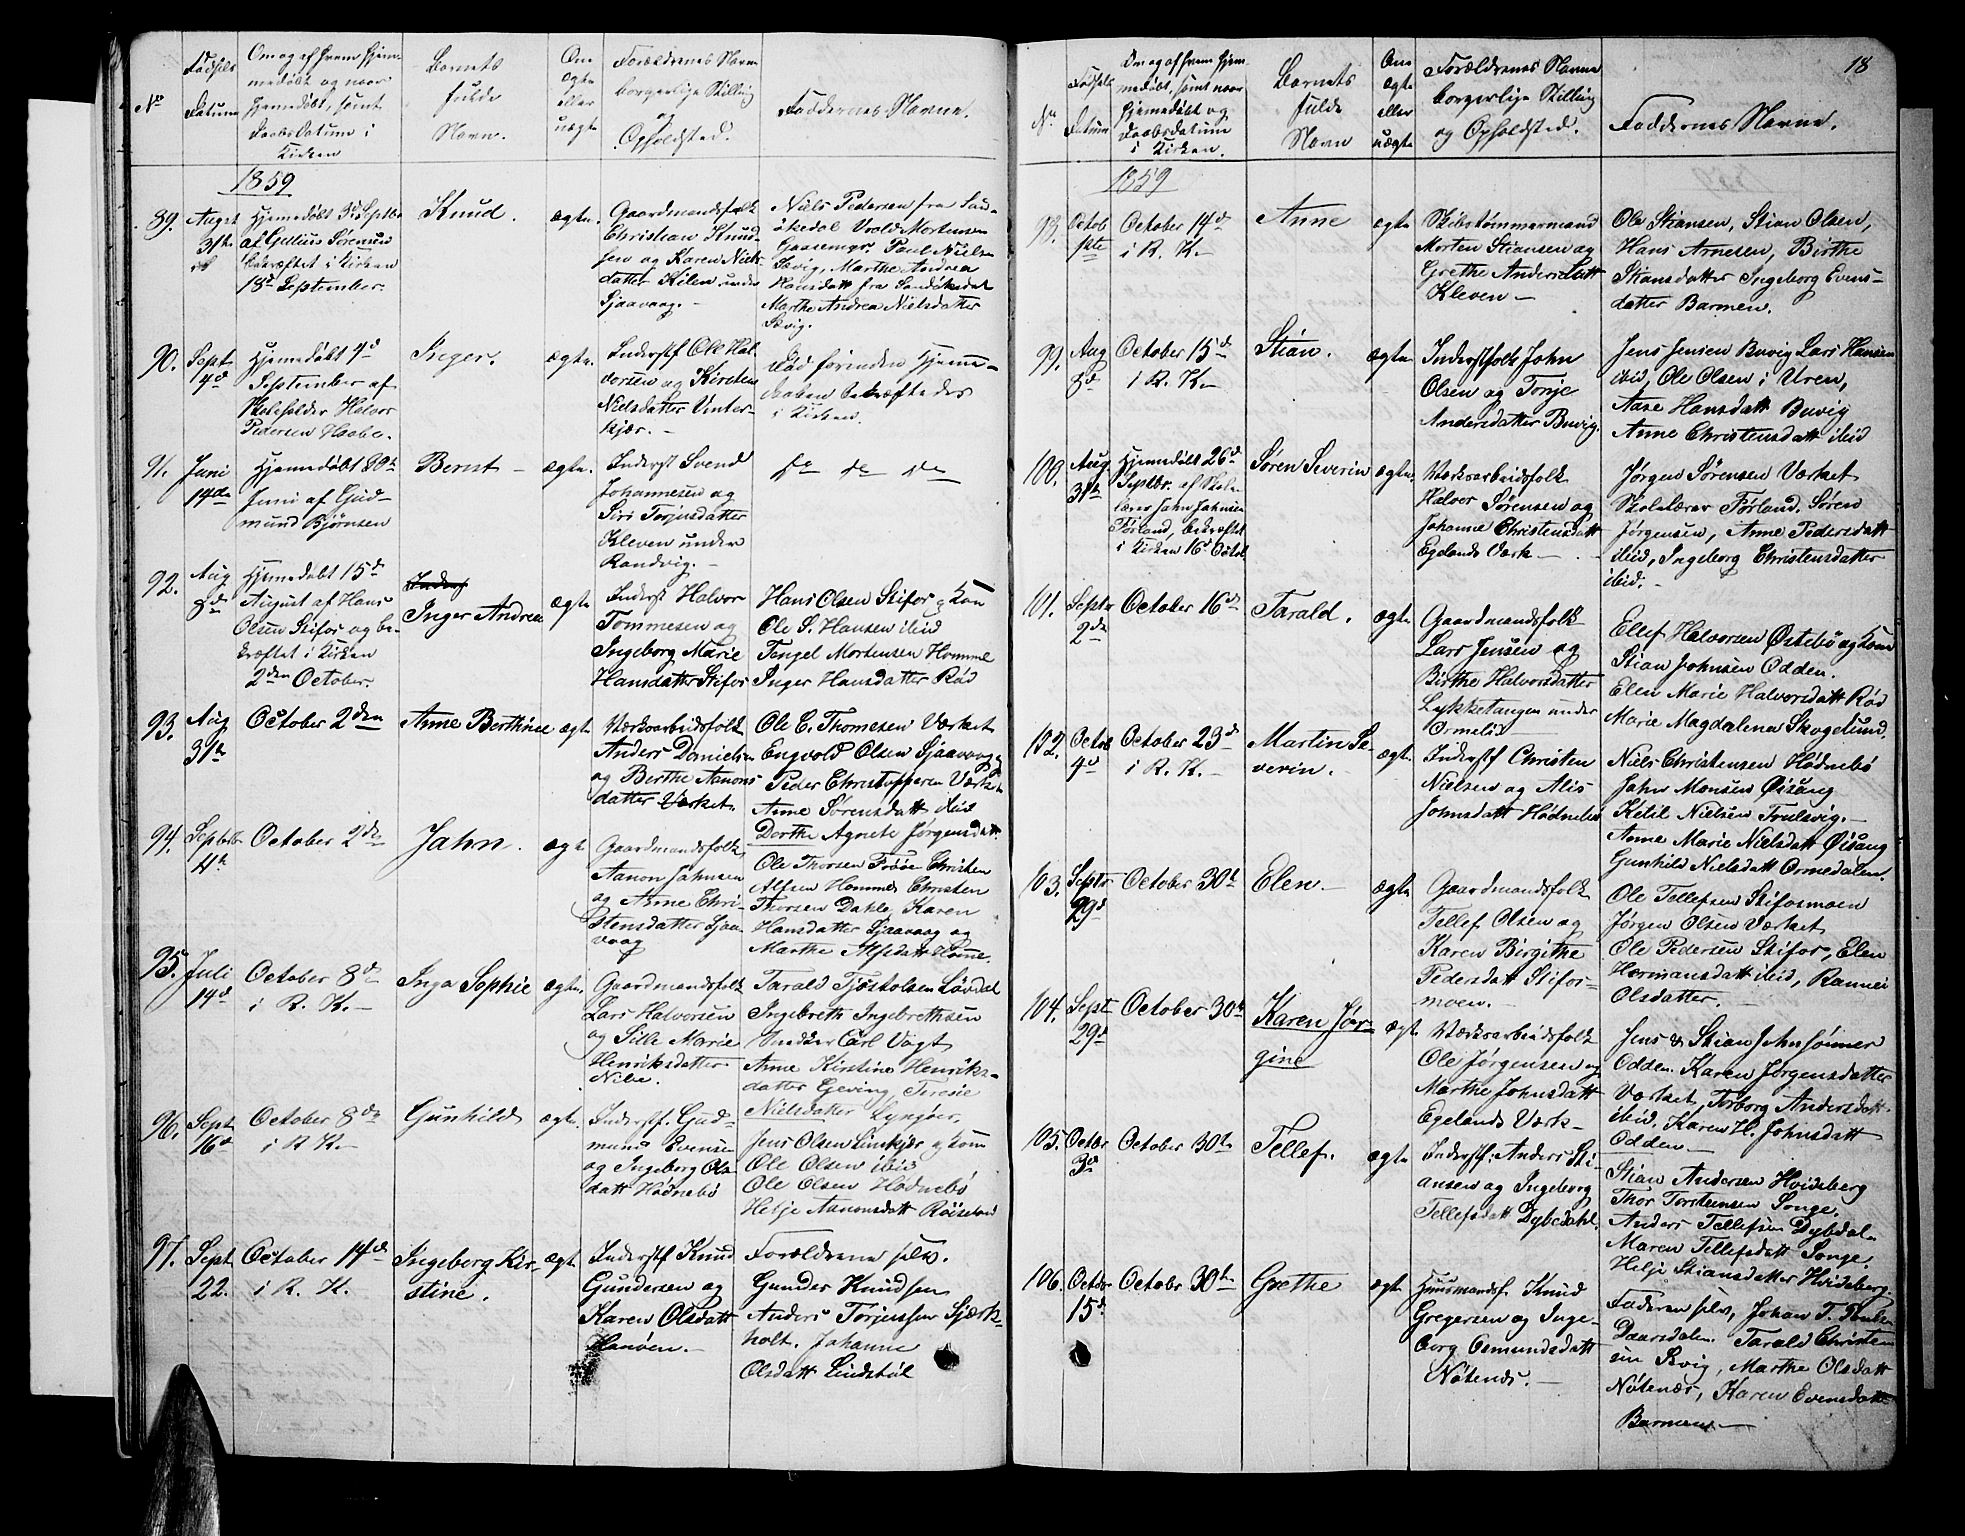 No
Fødsels
Datum
Om og af hvem hjem-
medøbt og naar
hjemedøbt, samt
Daabsdatum i
Kirken
Barnets
fulde
Navn.
Om
ægte
eller
uægte
Forældrenes Navne
borgerlige Stilling
og
Opholdsted.
Faddernes Navne.
1859
89.
Augst
31te
Hjemedøbt Septbr
af Gjellius Sørensen
bekræftet i Kirken
18de September.
Knud.
ægte.
Gaardmandsfolk
Christian Knud-
sen og Karen Niels-
datter Kilen under
Sjaavaag.
Niels Pedersen fra San-
økedal Vrold Mortensen
Gaasemyr Paul Nielsen
Sævig, Marthe Andrea
Hansdatt fra Sandøkedal
Marthe Andrea Nielsdatter
Sævig.
90.
Sept
4d
Hjemedøbt 4d
September af
Skoleholder Halvor
Pedersen Haabe.
Seger.
ægte.
Inderstf Ole Hal-
vorsen og Kirsten
Nielsdatter Vinter-
kjær.
Død forinden Hjemme-
daaben bekræftedes
i Kirken.
91.
Juni
14de
Hjemedøbt
Juni af Gud-
mund Bjørnsen
Bernt
ægte.
Inderst Svend
Johannesen og
Siri Torjusdatter
Kleven under
Randvig.
do do do
92.
Aug
8d
Hjemedøbt 15d
August af Hans
Olsen Stifos og be-
kræftet i Kirken
2den October.
Inger Andrea
ægte
Inderst Halvor
Tommesen og
Ingeborg Marie
Hansdatter Stifos
Hans Olsen Stifos og Kon
Ole S. Hansen ibid
Tengel Mortensen Homme
Inger Hansdatter Rød
93.
Aug
31te
October 2den
Anne Berthine
ægt
Værksarbeidsfolk
Anders Danielsen
og Berthe Aanons
datter Værket.
Ole C. Thomesen Værket
Engvold Olsen Sjaavaag
Peder Christoffersen Værket
Anne Sørensdatt ibid
Dorthe Agnete Jørgensdatt.
94.
Septbr
4de
October 2de
Jahn.
ægt
Gaardmandsfolk
Aanon Jahnsen
og Anne Chri-
stensdatter Sjaa-
vaag
Ole Thorsen Frøøe Christen
Alfsen Homme Christen
Thorsen Dahle, Karen
Hansdatter Sjaavaag og
Marthe Alfsdatt Homme.
95.
Juli
14d
October 8de
i R. K.
Inga Sophie
ægte.
Gaardmandsfolk
Lars Halvorsen
og Sille Marie
Henriksdatter
Nibe.
Tarald Tjøstolsen Løvdal
Ingebreth Ingebrethsen
Snedker Carl Vogt
Anne Kirstine Henriks-
datter Geving, Teresie
Nielsdatter Lyngøer
96.
Sept
16d
October 8de
i R K.
Gunhild
ægte.
Inderstf. Gud-
mund Evensen
og Ingeborg Ols-
datt Hødnebø
Jens Olsen Linkjær og Kone
Ole Olsen ibid
Ole Olsen Hødnebø
Helje Aanonsdatt Røiseland
97.
Sept
22.
October 14de
i R. K.
Ingeborg Kir-
stine.
ægte
Inderstf Knud
Gundersen og
Karen Olsdatt
Hanven.
Forældrene selv.
Gunder Knudsen
Anders Torjussen Sjærk-
holt. Johanne
Olsdatt Lindstøl
18
No
Fødsels
Datum
Om og af hvem hjem-
medøbt, samt naar
hjemedøbt og
Daabsdatum
i Kirken.
Barnets
fulde
Navn
Om
ægte
eller
uægte
Forældrenes Navne
borgerlige Stilling
og Opholdsted.
Faddernes Navne.
1859
98.
Octob
1ste
October 14d
i R. K.
Anne
ægte
Skibstømmermand
Morten Stiansen og
Grethe Andersdatt
Kleven
Ole Stiansen, Stian Olsen,
Hans Arnesen, Birthe
Stansdatter Ingeborg Evens-
datter Barmen.
99.
Aug
8d
October 15d
i R. K.
Stian.
ægte.
Inderstfolk John
Olsen og Torje
Andersdatter Buvig.
Jens Jensen Buvig Lars Hansen
ibid, Ole Olsen i Uren,
Aase Hansdatt Buvig
Anne Christensdatt ibid
100.
Aug
31te
Hjemedøbt 26d
Septbr. af Skole-
lærer John Johnsen
Førland, bekræftet
i Kirken 16d Octob.
Søren Severin
ægte.
Værksarbeidsfolk
Halvor Sørensen og
Johanne Christensdatt
Egelands Værk
Jørgen Sørensen Værket
Skolelærer Førland, Søren
Jørgensen, Anne Pedersdatt
ibid, Ingeborg Christensdatter
ibid.
101.
Septr
2de
October 16de
Tarald.
ægte
Gaardmandsfolk
Lars Jensen og
Birthe Halvorsdatter
Lykketangen under
Ormelid
Ellef Halvorsen Østebø og Kone
Stian Johnsen Odden.
Elen Marie Halvorsdatt Rød
Marie Magdalena Skogelund.
102.
Octob
4d
October 23d
i R. K.
Martin Se-
verin.
ægte.
Inderstf Christen
Nielsen og Alis
Johnsdatt Hødnebø
Niels Christensen Hødnebø
John Monsen Øisang
Ketil Nielsen Trulsvig.
Anne Marie Nielsdatt Øisang
Gunhild Nielsdatt Ormedalen.
103.
Septr
29d
October 30te
Elen.
ægte
Gaardmandsfolk
Tellef Olsen og
Karen Birgithe
Pedersdatt Stifos-
moen.
Ole Tellefsen Stifosmoen
Jørgen Olsen Værket
Ole Pedersen Stifos, Elen
Hermansdatt ibid, Rannei
Olsdatter.
104.
Sept
29d
October 30te
Karen Jør-
gine
ægte
Værksarbeidsfolk
Ole Jørgensen og
Marthe Johnsdatt
Egelands Værk
Jens & Stian Johnsønner
Odden. Karen Jørgensdatter
Værket, Torborg Andersdatt.
ibid, Karen H. Johnsdatt
Odden
105.
Octbr
3d
October 30te
Tellef.
ægte
Inderstf: Anders Sti-
ansen og Ingeborg
Tellefsdatt Dybdahl.
Stian Andersen Hvideberg
Thor Torstensen Songe.
Anders Tellefsen Dybdal
Maren Tellefsdatt Songe.
Helje Stiansdatter Hvideberg.
106.
Octobr
15d
Octobr 30te
Grethe
ægte
Huusmandsf. Knud
Gregersen og Inge-
borg Osmundsdatt
Nøtenæs.
Faderen selv, Johan T.
Daarsdalen. Tarald Christen
sen Sævig, Marthe Olsdatt
Nøtenæs, Karen Evensdatt
Barmen